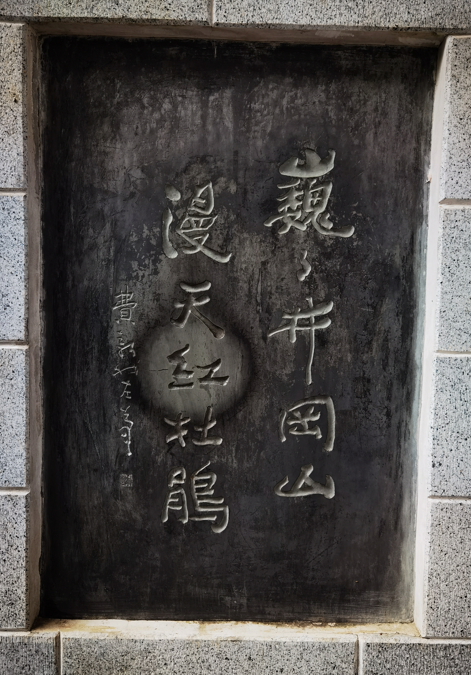 巍々井冈山
漫天红杜鹃
費新我左筆